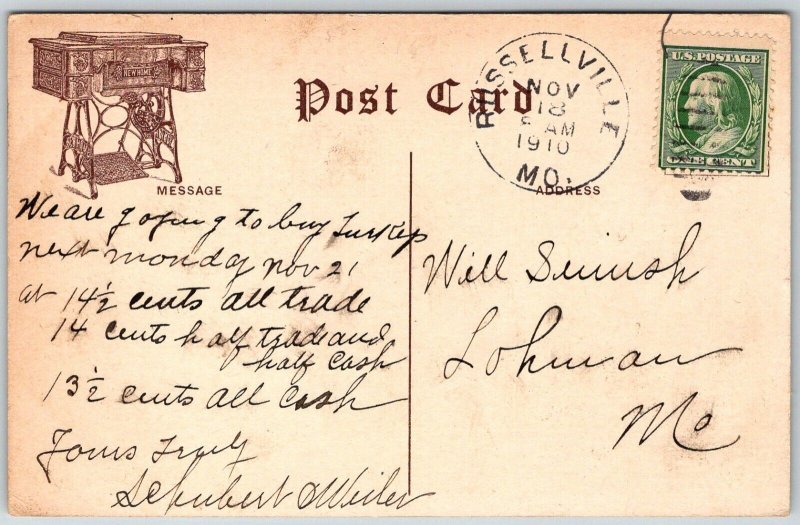 NEW HOME
Post Card
RUSSELLVILLE
NOV
18
AM
1910
MO.
U.S. POSTAGE
ONE CENT
MESSAGE
ADDRESS
We are going to buy Turkeys
next monday nov 21
at 14½ cents all trade
14 cents half trade and
half cash
13½ cents all cash
Yours Truly
Schubert & Weiler
Will
Lohman
Mo